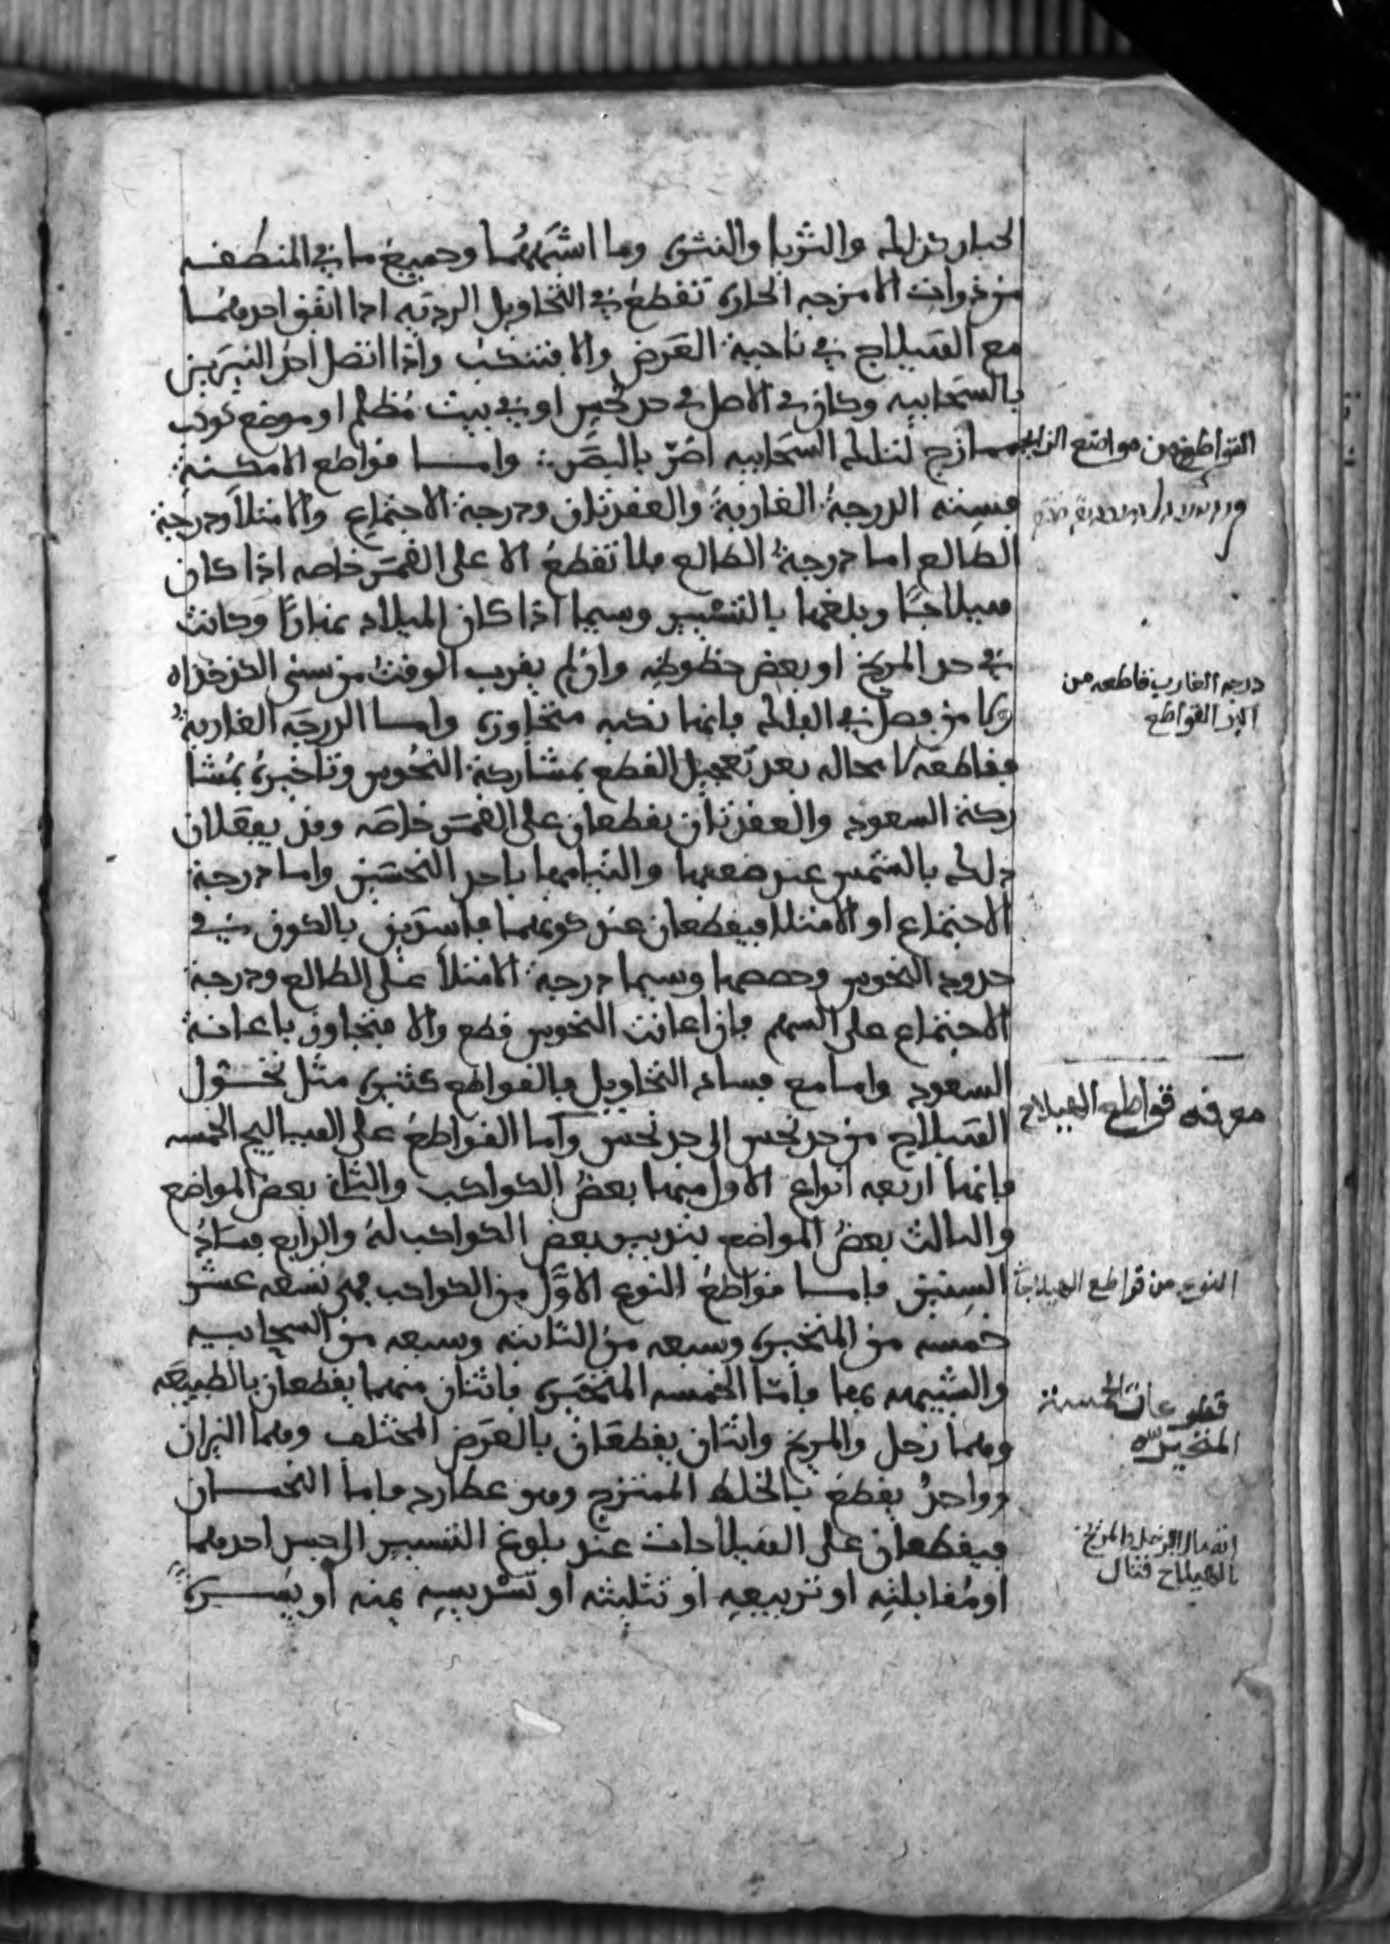 الجبار كذلك والثريا والنثرة وما اشبههما وجميع ما في المنطقة
من ذوات الامزجه الحارة تقطع في التحاويل الردية اذا اتفق احدهما
مع الهيلاج في ناحية العرض والا فتنكب واذا اتصل احد النيرين
بالسحابيه وكان في الاصل في حد نحس او في بيت مظلم او موضع كوكب
ممازج لتلك السحابيه اضر بالبصر واما قواطع الامكنة
فستة الدرجة الغاربة والعقدتان ودرجة الاجتماع والامتلا ودرجة
الطالع اما درجة الطالع فلا تقطع الا على القمر خاصه اذا كان
هيلاجا وبلغها بالتسيير وسيما اذا كان الميلاد نهارا وكانت
في حد المريخ او بعض حظوظه وان لم يقرب الوقت من سنى الكدخداه
ولا من فصل في الفلك فانها نكبه متجاوزة واما الدرجة الغاربة
فقاطعة لا محاله بعد تعجيل القطع بمشاركة النحوس وتاخيره بمشا
ركة السعود والعقدتان يقطعان على القمر خاصه وقد يفعلان
ذلك بالشمس عند ضعفها والتيامها باحد النحسين واما درجة
الاجتماع او الامتلا فيقطعان عند كونهما فاسدين بالكون في
حدود النحوس وحصصها وسيما درجة الامتلا على الطالع ودرجة
الاجتماع على السهم فان اعانت النحوس قطع والا فتجاوز باعانة
السعود واما مع فساد التحاويل فالقواطع كثيرة مثل تحول
الهيلاج من حد نحس الى حد نحس واما القواطع على الهياليج الخمسه
فانها اربعه انواع الاول منها بعض الكواكب والثاني بعض المواضع
والثالث بعض المواضع بتوبيس بعض الكواكب له والرابع فساد
السنين فاما قواطع النوع الاول من الكواكب فهي تسعه عشر
خمسه من المتحيرة وسبعه من الثابته وسبعه من السحابيه
والشبيهه بها فاما الخمسه المتحيرة فاثنان منهما يقطعان بالطبيعه
وهما زحل والمريخ واثنان يقطعان بالعرض المختلف وهما النيران
وواحد يقطع بالخلط الممتزج وهو عطارد فاما النحسان
فيقطعان على الهيلاجات عند بلوغ التسيير الى جسد احدهما
او مقابلته او تربيعه او تثليثه او تسديسه يمنه او يسرة
القواطع من مواضع الزايجه
درجه الغارب قاطعه من
اكبر القواطع
معرفه قواطع الهيلاج
النوع من قواطع الهيلاجات
قطوعات الخمسة
المتحيرة
اتصال زحل والمريخ
بالهيلاج قتال